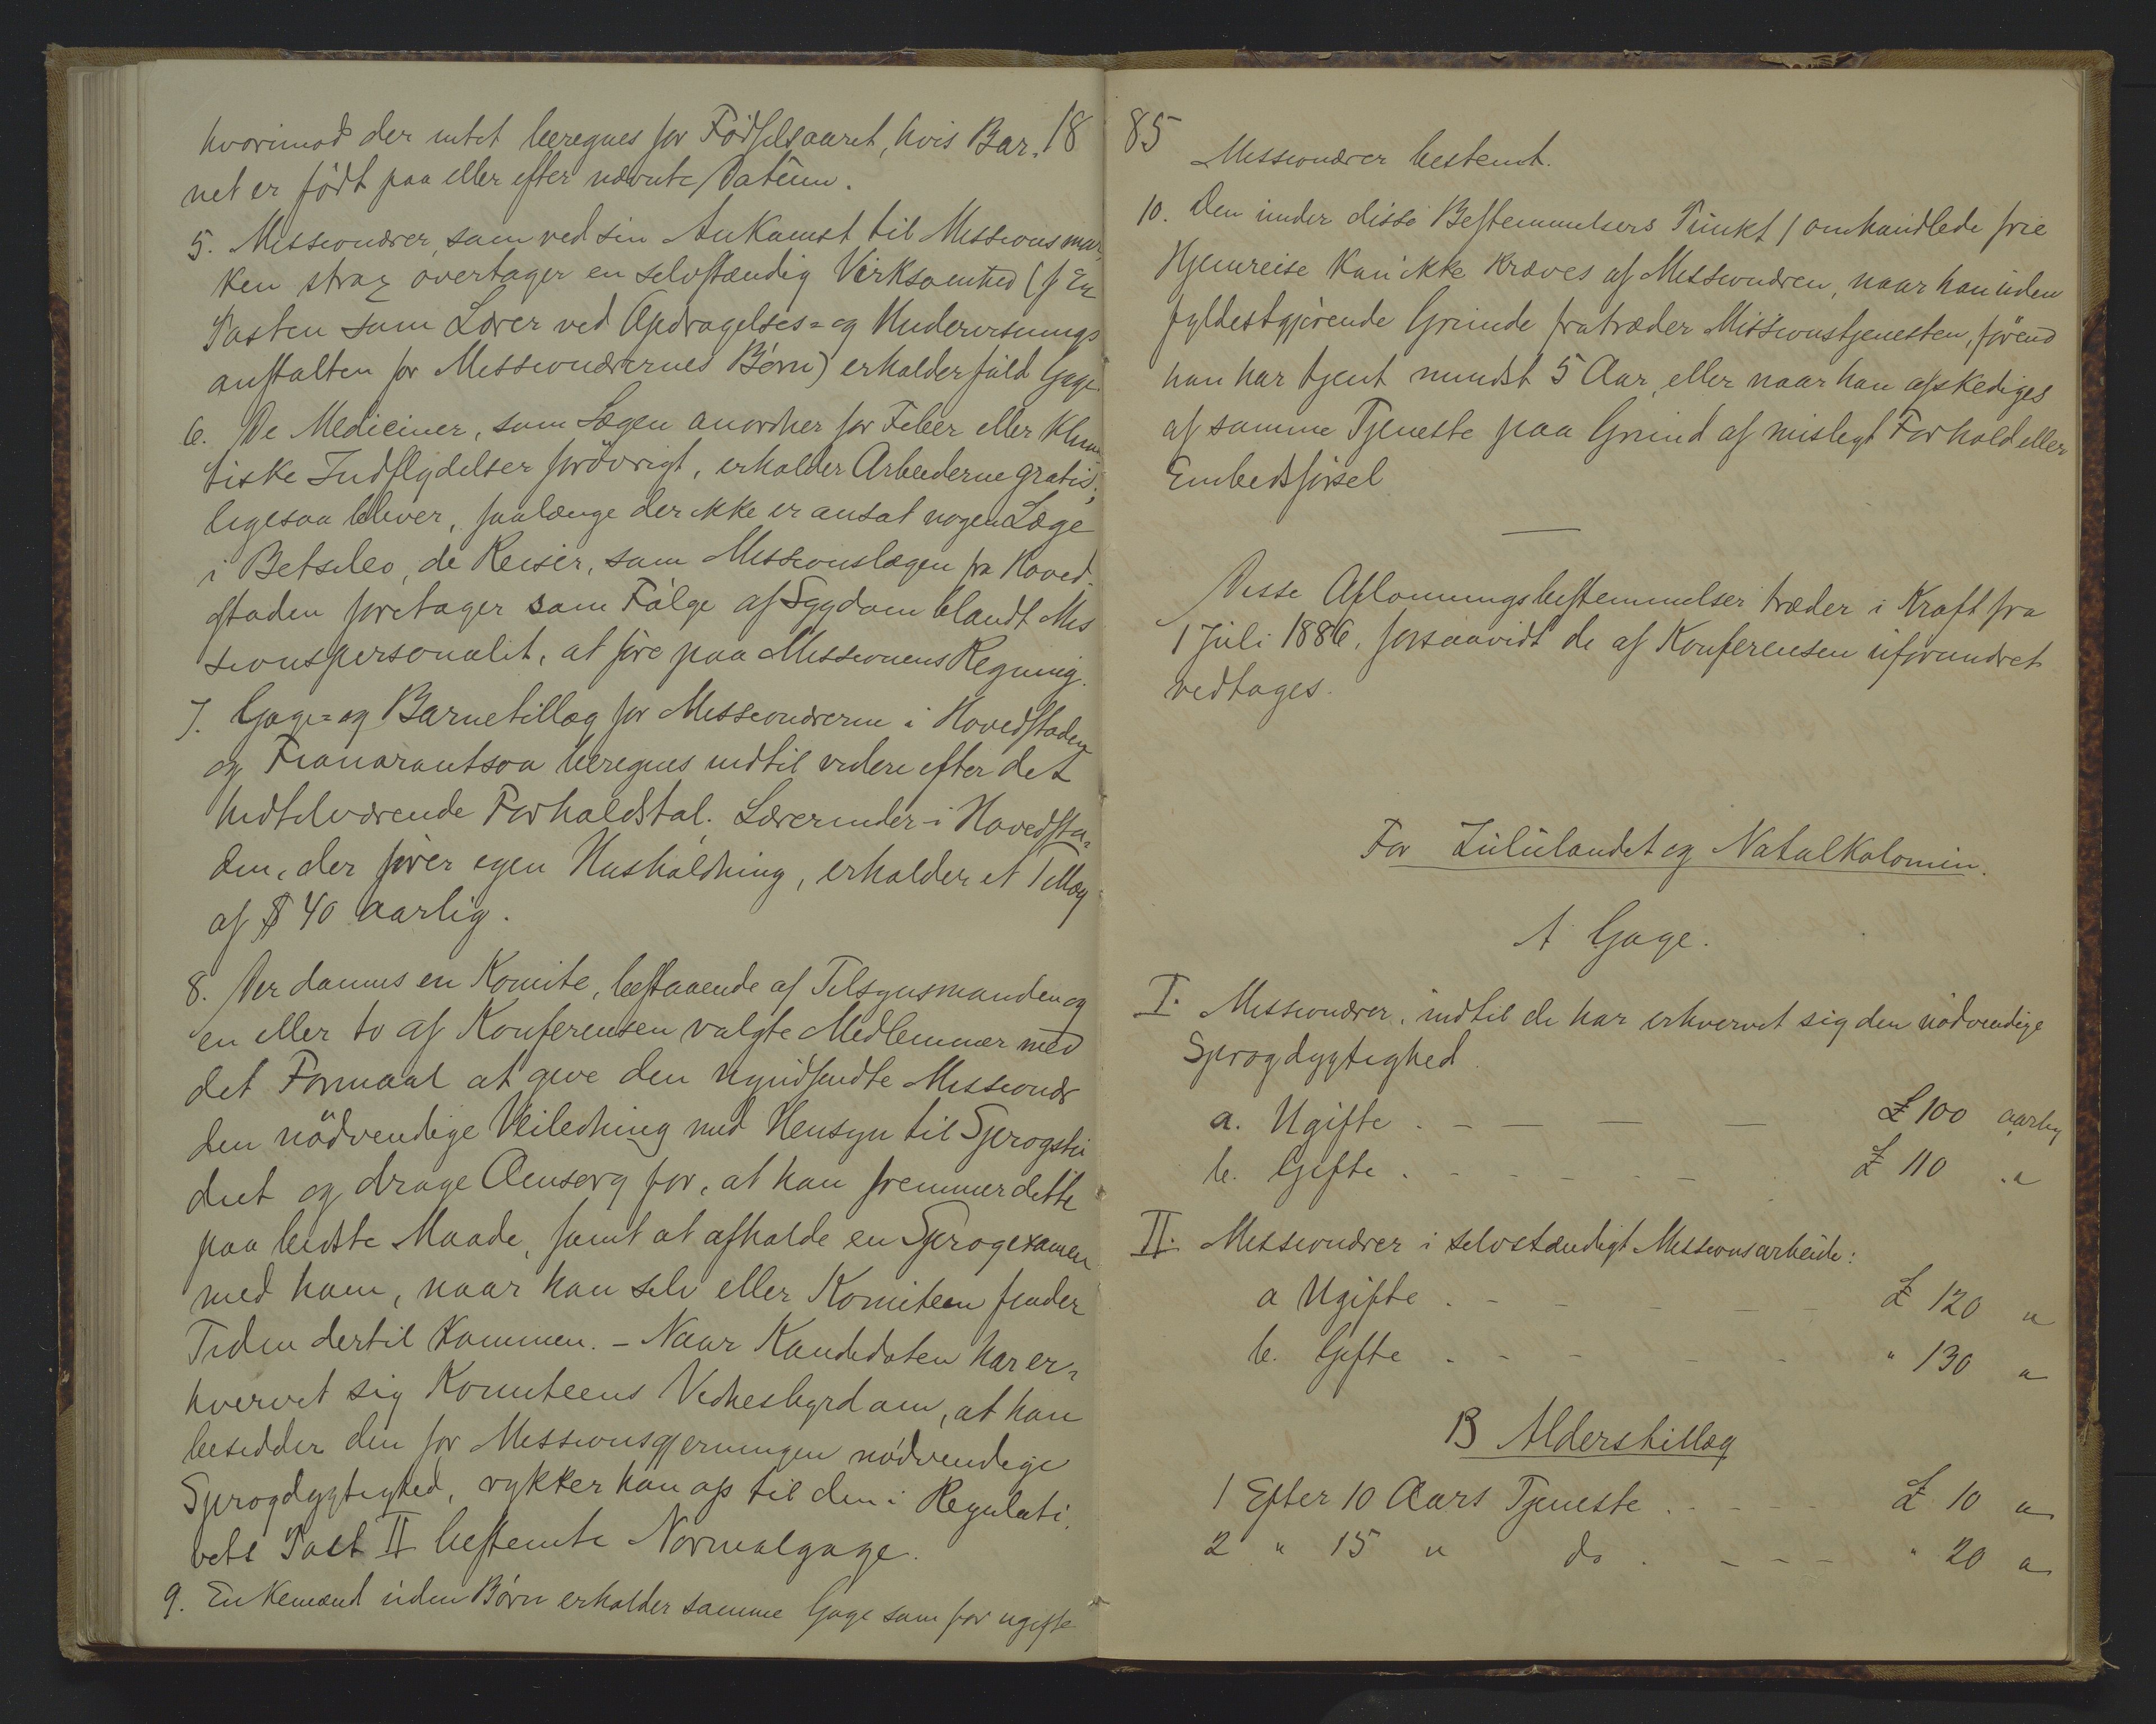 hvorimod der intet beregnes for Fødselsaaret, hvis Bar- 18
net er født paa eller efter nævnte Datum.
5. Missionærer, som ved sin Ankomst til Missionsmar-
ken strax overtager en selvstændig Virksomhed (f Ex
Posten som Lærer ved Opdragelses- og Undervisnings
anstalten for Missionærernes Børn) erholder fuld Gage.
6. De Mediciner, som Lægen anordner for Feber eller Klima
tiske Indflydelser forøvrigt, erholder Arbeiderne gratis;
ligesaa bliver, saalænge der ikke er ansat nogen Læge
i Betsileo, de Reiser, som Missionslægen fra Hoved-
staden foretager som Følge af Sygdom blandt Mis
sionspersonalet, at føre paa Missionens Regning.
7. Gage- og Barnetillæg for Missionærerne i Hovedstaden
og Fianarantsoa beregnes indtil videre efter det
hidtilværende Forholdstal. Lærerinder i Hovedsta-
den, der fører egen Husholdning, erholder et Tillæg
af $ 40 aarlig.
8. Der dannes en Komite, bestaaende af Tilsynsmanden og
en eller to af Konferensen valgte Medlemmer med
det Formaal at give den nyudsendte Missionær
den nødvendige Veiledning med Hensyn til Sprogstu
diet og drage Omsorg for, at han fremmer dette
paa bedste Maade, samt at afholde en Sprogexamen
med ham, naar han selv eller Komiteen finder
Tiden dertil kommen. - Naar Kandidaten har er-
hvervet sig Komiteens Vidnesbyrd om, at han
besidder den for Missionsgjerningen nødvendige
Sprogdygtighed, rykker han op til den i Regulati-
vets Post II bestemte Normalgage.
9. Enkemænd uden Børn erholder samme Gage som for ugifte
85
Missionærer bestemt.
10. Den under disse Bestemmelsers Punkt 1 omhandlede frie
Hjemreise kan ikke kræves af Missionæren, naar han uden
fyldestgjørende Grunde fratræder Missionstjenesten, førend
han har tjent mindst 5 Aar, eller naar han afskediges
af samme Tjeneste paa Grund af misligt Forhold eller
Embedsførsel
Disse Aflønningsbestemmelser træder i Kraft fra
1 Juli 1886, forsaavidt de af Konferensen uforandret
vedtages.
For Zululandet og Natalkolonien.
A Gage.
I. Missionærer, indtil de har erhvervet sig den nødvendige
Sprogdygtighed
a. Ugifte . - - - - £ 100 aarlig
b. Gifte . - - - - - £ 110 "
II. Missionærer i selvstændigt Missionsarbeide:
a Ugifte . - - - - - £ 120 "
b. Gifte . - - - - " 130 "
B Alderstillæg
1 Efter 10 Aars Tjeneste . - - - £ 10 "
2 " 15 " do . - - - " 20 "